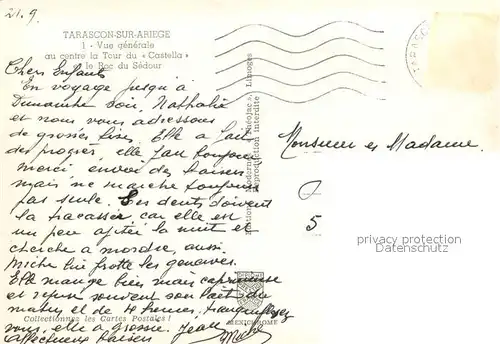 21.9.
TARASCON-SUR-ARIEGE
1 - Vue générale
au centre la Tour du « Castella »
et le Roc du Sédour
Chers Enfants
En voyage jusqu'à
Dimanche soir, Nathalie
et nous vous adressons
de grosses bises. Elle a fait
des progrès, elle fait toujours
merci, envoie des baisers
mais ne marche toujours
pas seule. Ses dents doivent
la tracasser, car elle est
un peu agitée la nuit et
cherche à mordre, aussi
Miche lui frotte les gencives.
Elle mange bien mais capricieuse
et refuse souvent son lait du
matin et de 4 heures, tranquillisez
vous, elle a grossi. Jean
affectueux baisers
Miche
Collectionnez les Cartes Postales !
MEXICHROME
Limoges
reproduction interdite
TARASCON
Monsieur et Madame.
5
privacy protection
Datenschutz